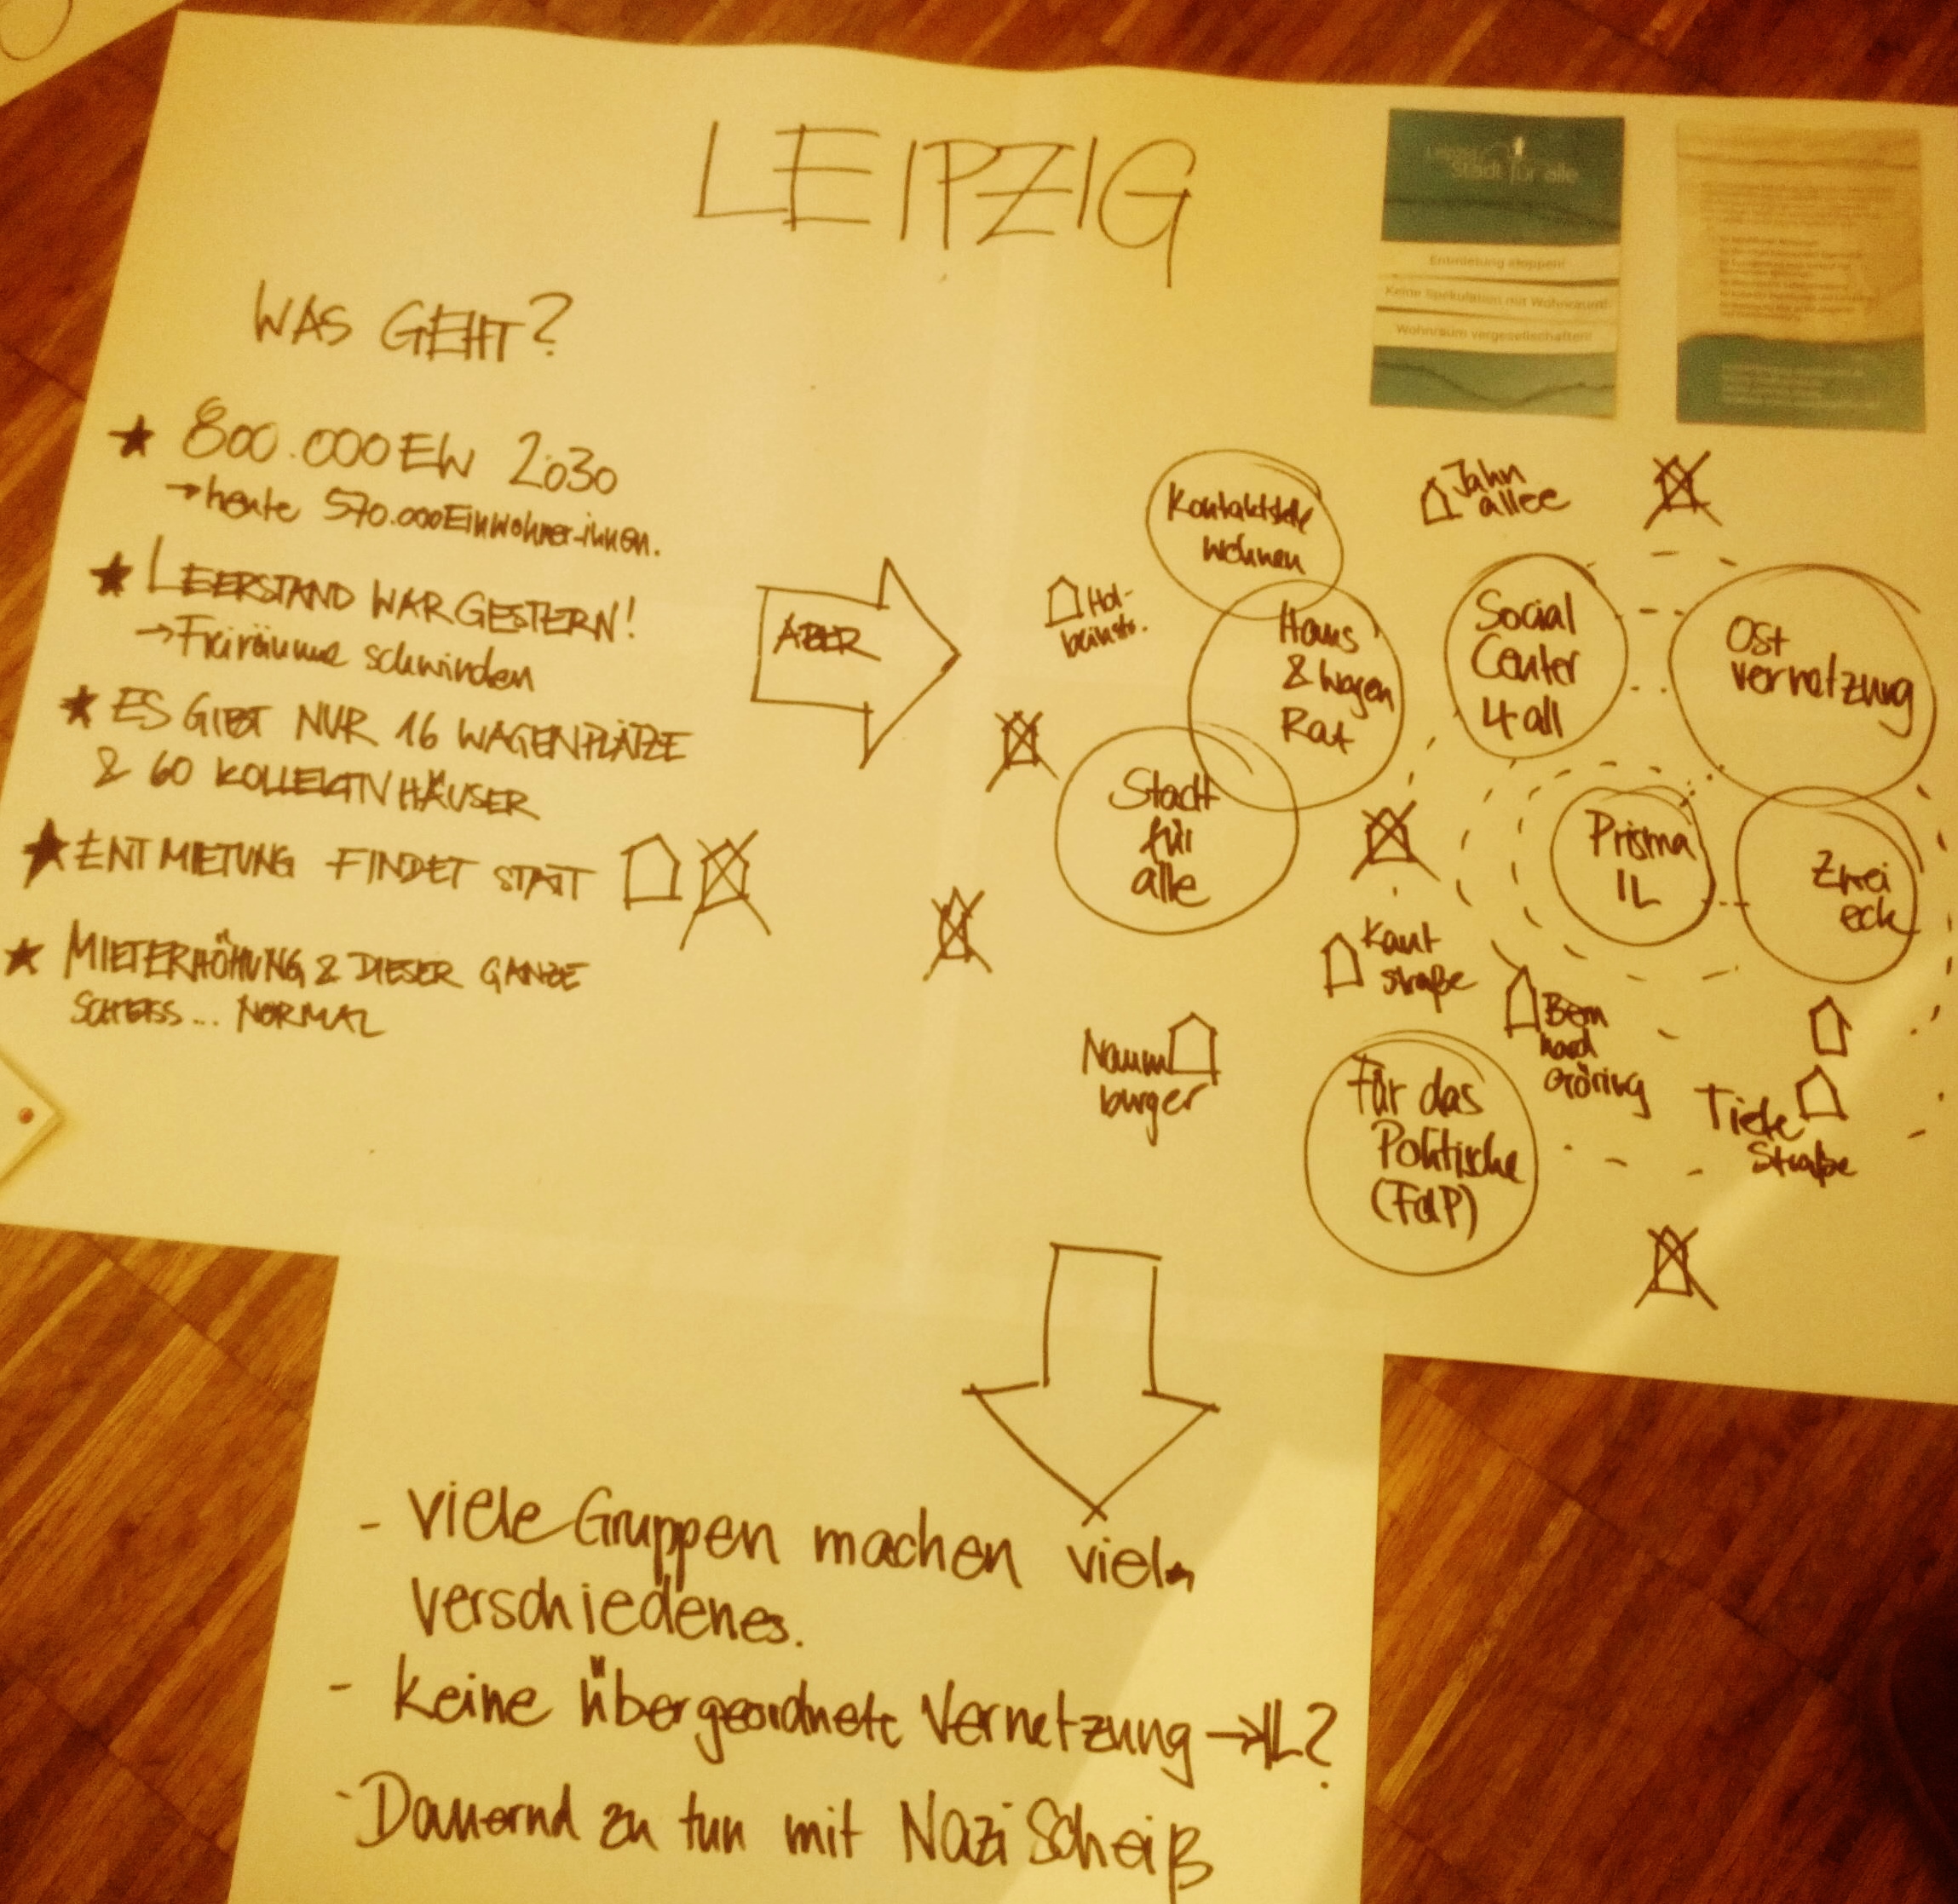 LEIPZIG
WAS GEHT?
★ 800.000 EW 2030
→ heute 570.000 Einwohner-innen.
★ LEERSTAND WAR GESTERN!
→ Freiräume schwinden
★ ES GIBT NUR 16 WAGENPLÄTZE
& 60 KOLLEKTIVHÄUSER
★ ENTMIETUNG FINDET STATT
★ MIETERHÖHUNG & DIESER GANZE
SCHEISS... NORMAL
ABER
Stadt für alle
Entmietung stoppen!
Keine Spekulation mit Wohnraum!
Wohnraum vergesellschaften!
Kontaktstelle
Wohnen
Jahn
allee
Hol-
beinstr.
Haus
& Wagen
Rat
Social
Center
4 all
Ost
vernetzung
Stadt
für
alle
Prisma
IL
Zwei
eck
Kant
straße
Bern
hard
Göring
Naum
burger
Für das
Politische
(FdP)
Tieke
Straße
- viele Gruppen machen viel
verschiedenes.
- keine übergeordnete Vernetzung → IL?
- Dauernd zu tun mit Nazi Scheiß